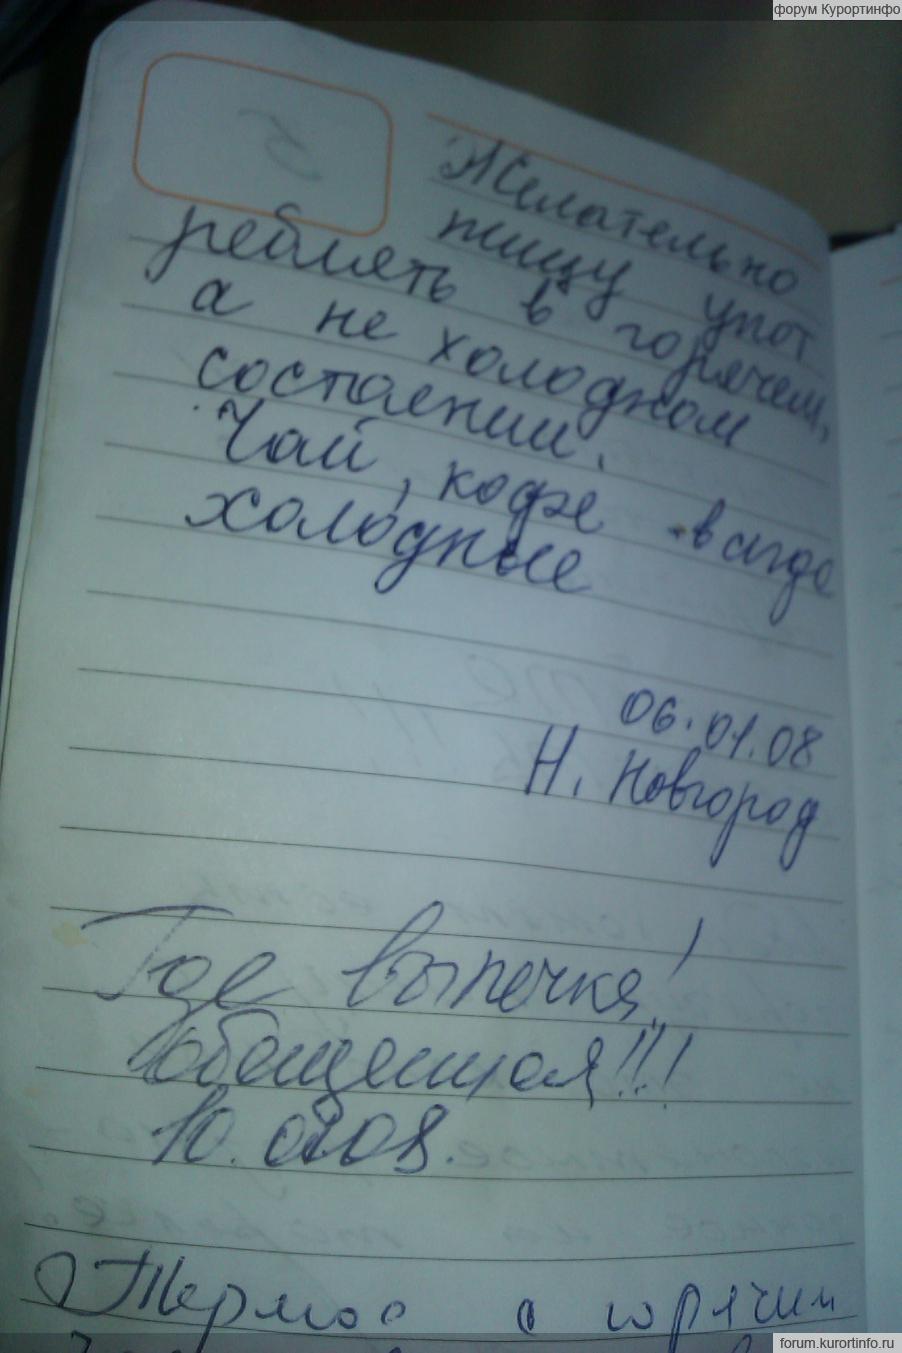 форум Курортинфо
Желательно
пищу упот
реблять в горячем,
а не холодном
состоянии.
Чай, кофе всегда
холодные
06.01.08
Н. Новгород
Где выпечка!
обещенная!!!
10.01.08.
Термос с горячим
forum.kurortinfo.ru